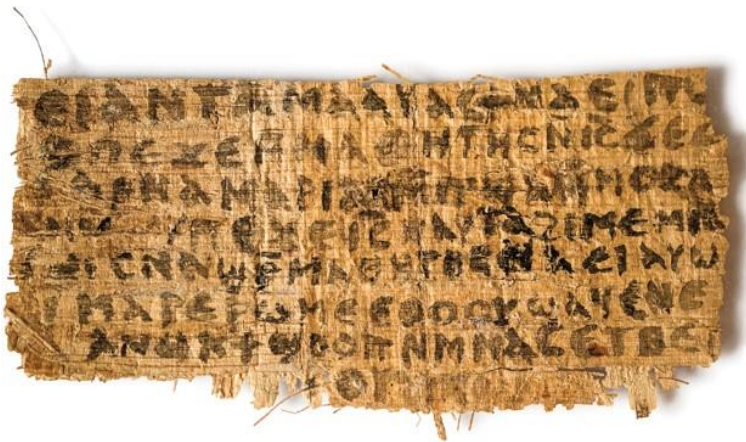 ⲉⲓ ⲁⲛ ⲧⲁⲙⲁⲁⲩ ⲁⲥϯ ⲛⲁⲉⲓ ⲡⲱ
ⲡⲉϫⲉ ⲙⲙⲁⲑⲏⲧⲏⲥ ⲛⲓ̅ⲥ̅ ϫⲉ ⲥ
ⲁⲣⲛⲁ ⲙⲁⲣⲓⲁⲙ
ⲡⲉϫⲉ ⲓ̅ⲥ̅ ⲛⲁⲩ ⲧⲁϩⲓⲙⲉ ⲙⲛ
ⲥⲛⲁϣⲣⲙⲁⲑⲏⲧⲏⲥ ⲛⲁⲉⲓ ⲁⲩⲱ
ⲓ ⲙⲁⲣⲉⲣⲱⲙⲉ ⲉⲑⲟⲟⲩ ϣⲁϥⲉ ⲛⲉ
ⲁⲛⲟⲕ ϯϣⲟⲟⲡ ⲛⲙⲙⲁⲥ ⲉⲧⲃⲉ